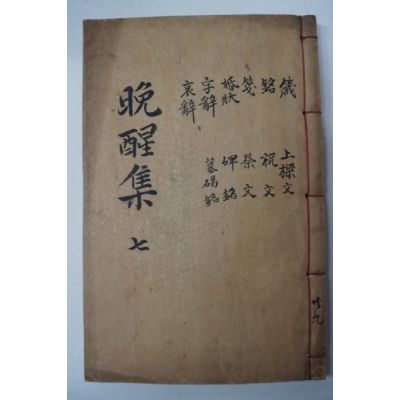 箴 上樑文
銘 祝文
箋 祭文
婚狀 碑銘
字辭 墓碣銘
哀辭
晚醒集 七
共九